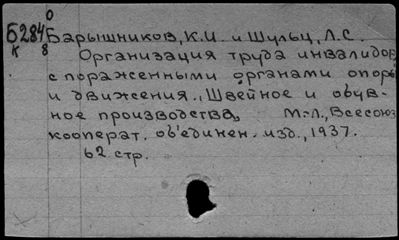 О
Б284 Барышников, К.И. и Шульц, Л.С.
К 8
Организация труда инвалидов
с пораженными органами опоры
и движения., Швейное и обув-
ное производства, М.-Л., Всесоюз
кооперат. об'единен. изд., 1937.
62 стр.